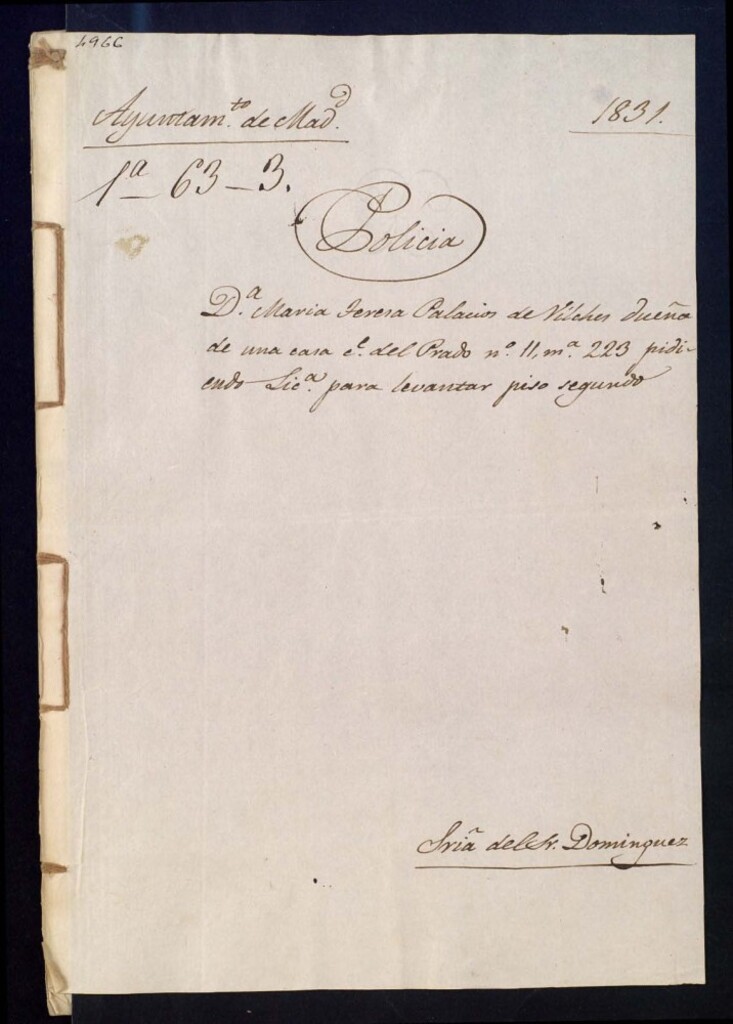 4966
Ayuntam.to de Mad.d
1831.
1a 63-3.
Policia
D.a Maria Teresa Palacios de Vilches dueña
de una casa c.e del Prado n.o 11, m.a 223 pidi-
endo Lic.a para levantar piso segundo
Sria del Sr. Dominguez